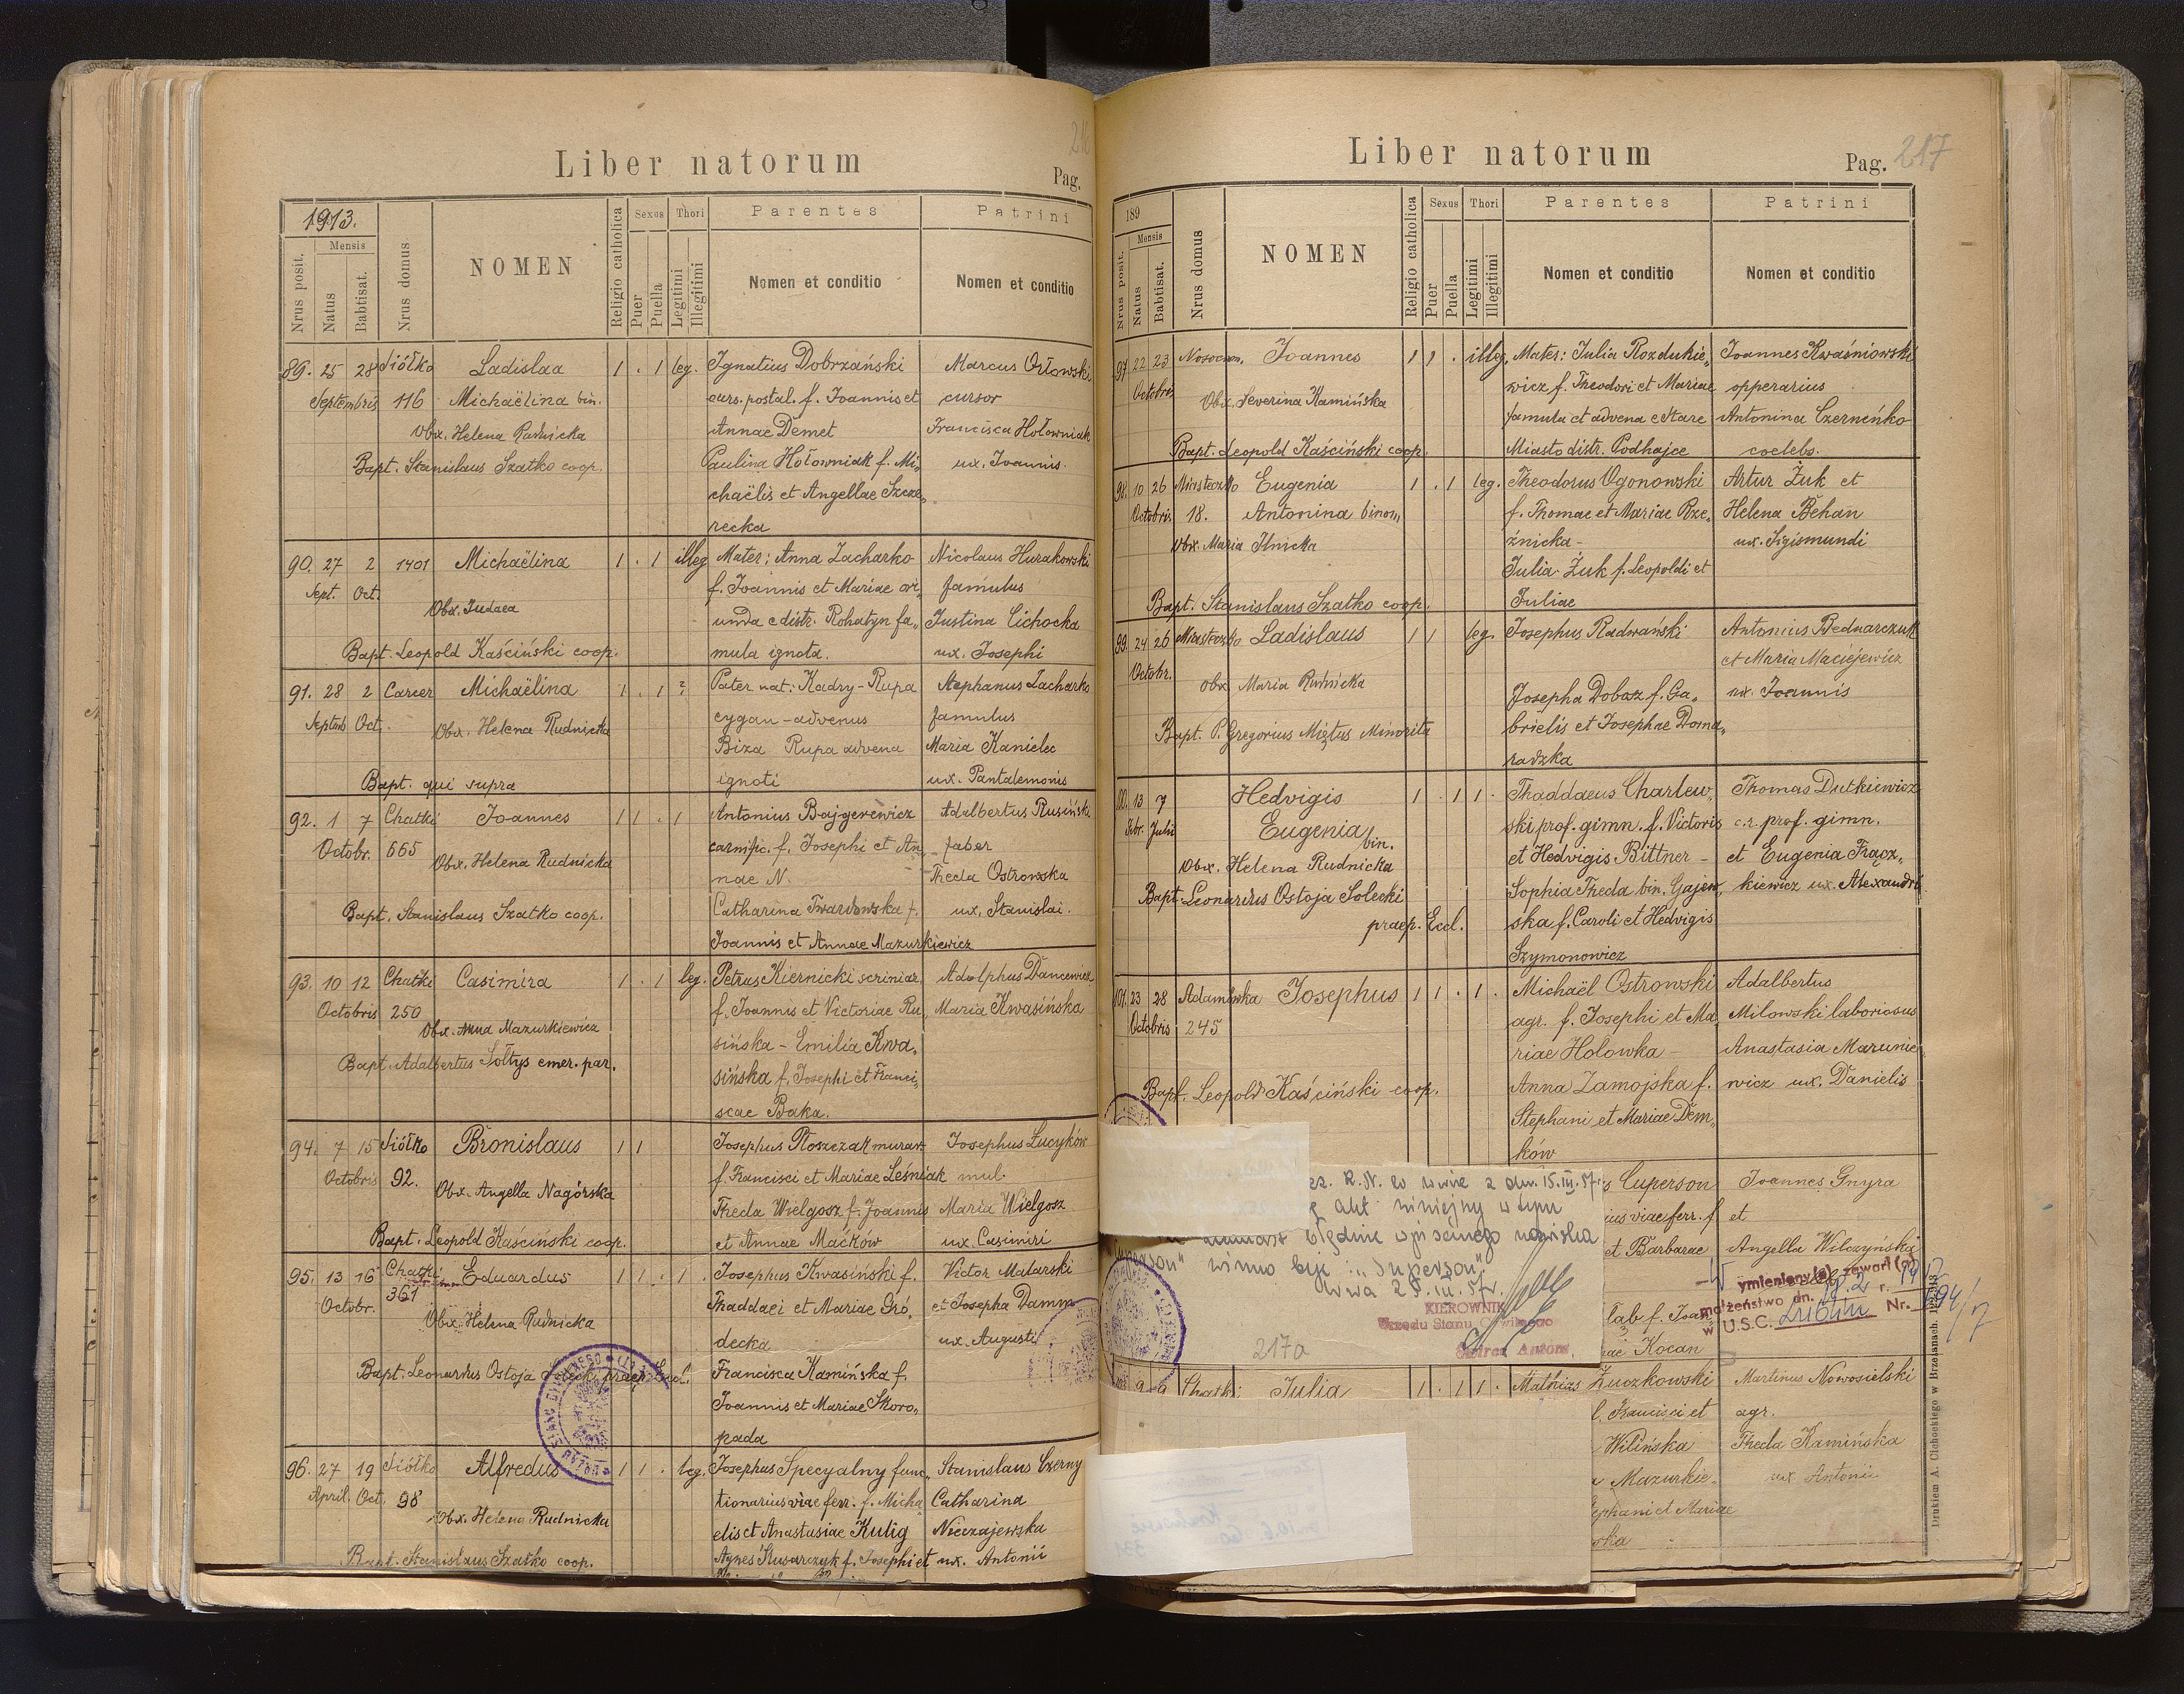 216
Liber natorum
Pag.
1913.
Nrus posit.
Mensis
Natus
Babtisat.
Nrus domus
NOMEN
Religio catholica
Sexus
Puer
Puella
Thori
Legitimi
Illegitimi
Parentes
Nomen et conditio
Patrini
Nomen et conditio
89. 25 28 Siółko Ladislaa 1 . 1 leg. Ignatius Dobrzański Marcus Orłowski
Septembris 116 Michaëlina bin. curs. postal. f. Joannis et cursor
Obx. Helena Rudnicka Annae Demet Francisca Hołowniak
Bapt. Stanislaus Szatko coop. Paulina Hołowniak f. Mi„ ux. Joannis.
chaëlis et Angellae Szcze„
recka
90. 27 2 1401 Michaëlina 1 . 1 illeg Mater: Anna Zacharko Nicolaus Hurakowski
Sept. Oct. f. Joannis et Mariae ori„ famulus
Obx. Judaea unda e distr. Rohatyn fa„ Justina Cichocka
Bapt. Leopold Kaściński coop. mula ignota. ux. Josephi
91. 28 2 Carcer Michaëlina 1 . 1 ? Pater nat: Kadry-Rupa Stephanus Zacharko
Septemb Oct. Obx. Helena Rudnicka cygan-advenus famulus
Biza Rupa advena Maria Kanielec
Bapt. qui supra ignoti ux. Pantalemonis
92. 1 7 Chatki Joannes 1 1 . 1 Antonius Bajgerewicz Adalbertus Rusiński
Octobr. 665 Obx. Helena Rudnicka carnific. f. Josephi et An„ faber
nae N. Thecla Ostrowska
Bapt. Stanislaus Szatko coop. Catharina Twardowska f. ux. Stanislai.
Joannis et Annae Mazurkiewicz
93. 10 12 Chatki Casimira 1 . 1 leg. Petrus Kiernicki scriniar. Adolphus Dancewicz
Octobris 250 f. Joannis et Victoriae Ru„ Maria Kwasińska
Obx. Anna Mazurkiewicz sińska - Emilia Kwa„
Bapt. Adalbertus Sołtys emer. par. sińska f. Josephi et Franci„
scae Baka.
94. 7 15 Siółko Bronislaus 1 1 Josephus Płoszczak murar. Josephus Łucyków
Octobris 92. Obx. Angella Nagórska f. Francisci et Mariae Leśniak mul.
Thecla Wielgosz f. Joannis Maria Wielgosz
Bapt. Leopold Kaściński coop. et Annae Maćków ux. Casimiri
95. 13 16 Chatki Eduardus 1 1 . 1 . Josephus Kwasiński f. Victor Malarski
Octobr. 361 Thaddaei et Mariae Gró„ et Josepha Damm
Obx. Helena Rudnicka decka ux. Augusti
Bapt. Leonardus Ostoja Solecki praep. Eccl. Francisca Kamińska f.
Joannis et Mariae Skoro„
pada
96. 27 19 Siółko Alfredus 1 1 . leg. Josephus Specyalny func„ Stanislaus Czerny
April. Oct. 98 tionarius viae ferr. f. Micha„ Catharina
Obx. Helena Rudnicka elis et Anastasiae Kulig Nieczajewska
Bapt. Stanislaus Szatko coop. Agnes Slusarczyk f. Josephi et ux. Antonii
Liber natorum
Pag. 217
189
Nrus posit.
Mensis
Natus
Babtisat.
Nrus domus
NOMEN
Religio catholica
Sexus
Puer
Puella
Thori
Legitimi
Illegitimi
Parentes
Nomen et conditio
Patrini
Nomen et conditio
97. 22 23 Nosocom. Joannes 1 1 . illeg. Mater: Julia Rozdukie„ Joannes Kwaśniowski
Octobris Obx. Severina Kamińska wicz f. Theodori et Mariae opperarius
famula et advena e Stare Antonina Czerneńko
Bapt. Leopold Kaściński coop. Miasto distr. Podhajce coelebs.
98. 10 26 Miasteczko Eugenia 1 . 1 leg. Theodorus Ogonowski Artur Żuk et
Octobris 18. Antonina binom„ f. Thomae et Mariae Rze„ Helena Behan
Obx. Maria Ilnicka źnicka - ux. Sigismundi
Julia Żuk f. Leopoldi et
Bapt. Stanislaus Szatko coop. Juliae
99. 24 26 Miasteczko Ladislaus 1 1 leg. Josephus Radwański Antonius Bednarczuk
Octobr. et Maria Maciejewicz
Obx Maria Rudnicka Josepha Dobosz f. Ga„ ux. Joannis
Bapt. P. Gregorius Miętus Minorita brielis et Josephae Doma„
radzka
100. 13 7 Hedvigis 1 . 1 1 . Thaddaeus Charlew„ Thomas Dutkiewicz
Febr. Julii Eugenia bin. ski prof. gimn. f. Victoris c.r. prof. gimn.
Obx. Helena Rudnicka et Hedvigis Bittner - et Eugenia Frącz„
Bapt. Leonardus Ostoja Solecki Sophia Thecla bin. Gajew„ kiewicz ux. Alexandri
praep. Eccl. ska f. Caroli et Hedvigis
Szymonowicz
101. 23 28 Adamówka Josephus 1 1 . 1 . Michaël Ostrowski Adalbertus
Octobris 245 agr. f. Josephi et Ma„ Milowski laboriosus
riae Holowka - Anastasia Marunie
Anna Zamojska f. wicz ux. Danielis
Bapt. Leopold Kaściński coop. Stephani et Mariae Dem„
ków
Cuperson Joannes Gnyra
ius viae ferr. f. et
et Barbarae Angella Wilczyńska
lab f. Joan
nae Kocan
akt niniejszy w
błędnie wpisanego nazwiska
winno być: „Superson"
KIEROWNIK
Urzędu Stanu Cywilnego
217a
wymieniony(a) zawarł(a)
małżeństwo dn.
w U.S.C. Lublin Nr.
9 9 Chatki Julia 1 . 1 1 . Mathias Zuczkowski Martinus Nowosielski
f. Francisci et agr.
Wilińska Thecla Kamińska
Mazurkie„ ux Antonii
Stephani et Mariae
ska
Drukiem A. Clebeckiego w Brzeżanach.